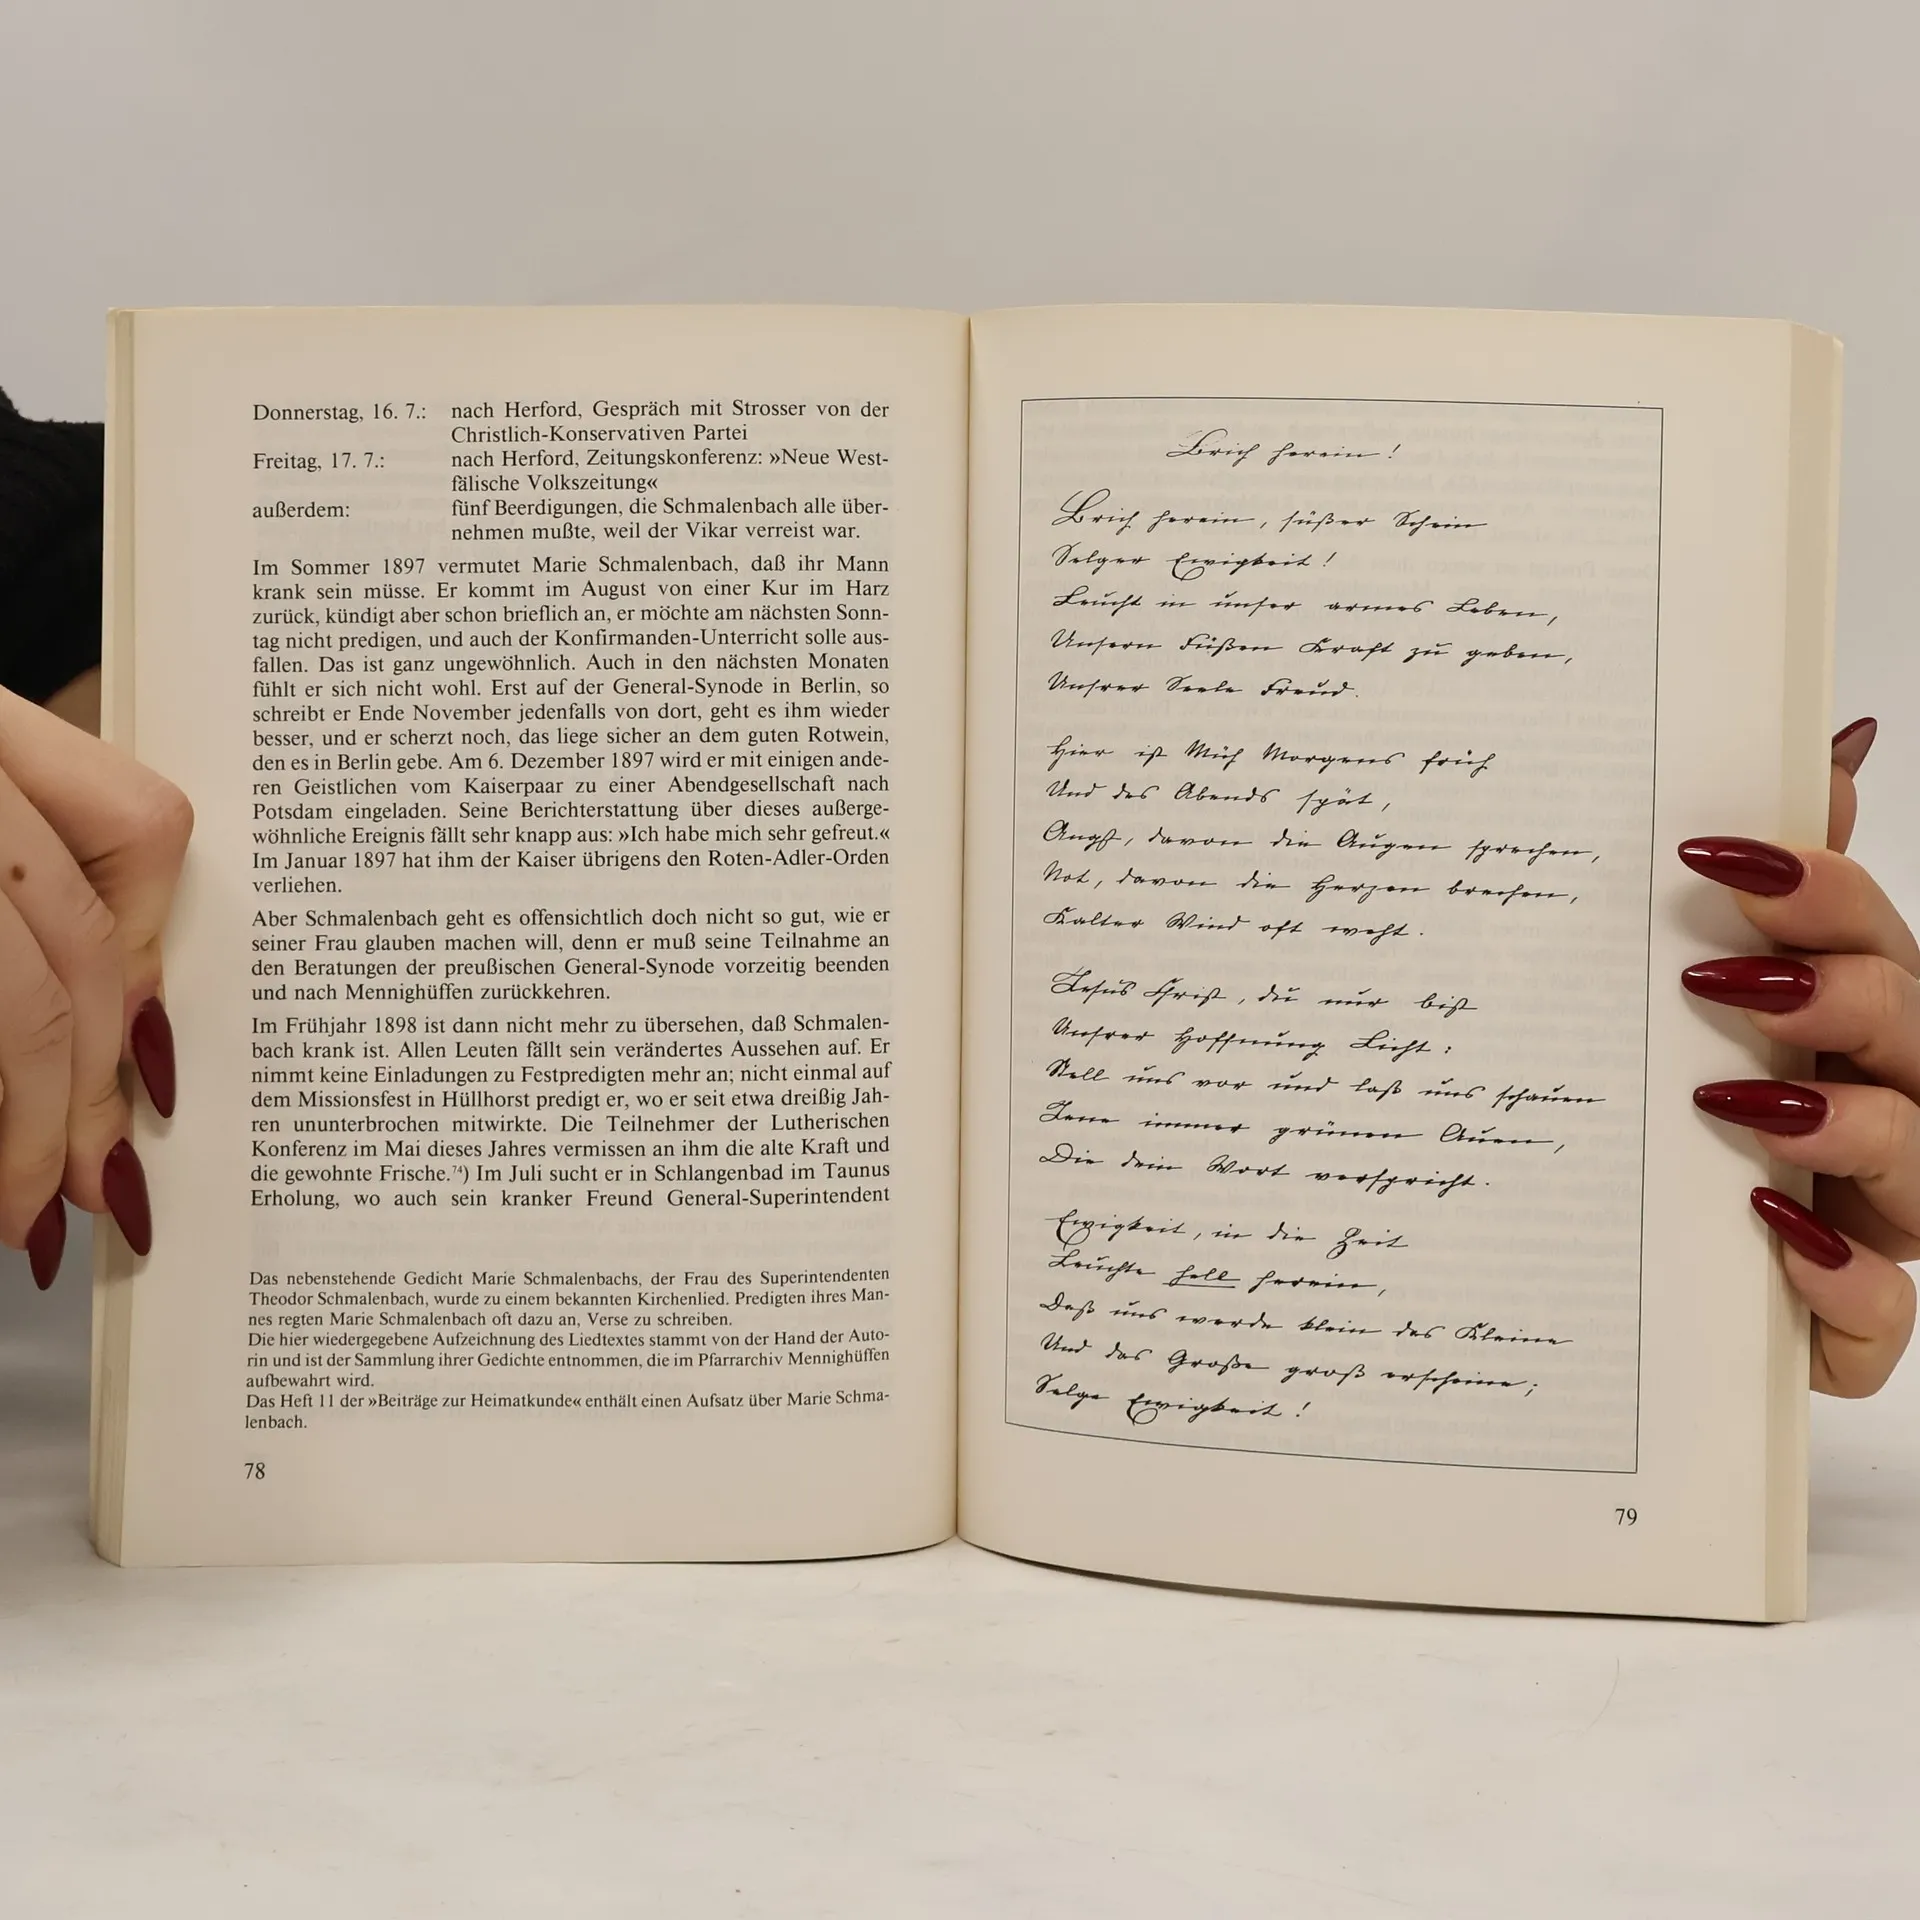 Donnerstag, 16. 7.: nach Herford, Gespräch mit Strosser von der
Christlich-Konservativen Partei
Freitag, 17. 7.: nach Herford, Zeitungskonferenz: »Neue West-
fälische Volkszeitung«
außerdem: fünf Beerdigungen, die Schmalenbach alle über-
nehmen mußte, weil der Vikar verreist war.
Im Sommer 1897 vermutet Marie Schmalenbach, daß ihr Mann
krank sein müsse. Er kommt im August von einer Kur im Harz
zurück, kündigt aber schon brieflich an, er möchte am nächsten Sonn-
tag nicht predigen, und auch der Konfirmanden-Unterricht solle aus-
fallen. Das ist ganz ungewöhnlich. Auch in den nächsten Monaten
fühlt er sich nicht wohl. Erst auf der General-Synode in Berlin, so
schreibt er Ende November jedenfalls von dort, geht es ihm wieder
besser, und er scherzt noch, das liege sicher an dem guten Rotwein,
den es in Berlin gebe. Am 6. Dezember 1897 wird er mit einigen ande-
ren Geistlichen vom Kaiserpaar zu einer Abendgesellschaft nach
Potsdam eingeladen. Seine Berichterstattung über dieses außerge-
wöhnliche Ereignis fällt sehr knapp aus: »Ich habe mich sehr gefreut.«
Im Januar 1897 hat ihm der Kaiser übrigens den Roten-Adler-Orden
verliehen.
Aber Schmalenbach geht es offensichtlich doch nicht so gut, wie er
seiner Frau glauben machen will, denn er muß seine Teilnahme an
den Beratungen der preußischen General-Synode vorzeitig beenden
und nach Mennighüffen zurückkehren.
Im Frühjahr 1898 ist dann nicht mehr zu übersehen, daß Schmalen-
bach krank ist. Allen Leuten fällt sein verändertes Aussehen auf. Er
nimmt keine Einladungen zu Festpredigten mehr an; nicht einmal auf
dem Missionsfest in Hüllhorst predigt er, wo er seit etwa dreißig Jah-
ren ununterbrochen mitwirkte. Die Teilnehmer der Lutherischen
Konferenz im Mai dieses Jahres vermissen an ihm die alte Kraft und
die gewohnte Frische.⁷⁴) Im Juli sucht er in Schlangenbad im Taunus
Erholung, wo auch sein kranker Freund General-Superintendent
Das nebenstehende Gedicht Marie Schmalenbachs, der Frau des Superintendenten
Theodor Schmalenbach, wurde zu einem bekannten Kirchenlied. Predigten ihres Man-
nes regten Marie Schmalenbach oft dazu an, Verse zu schreiben.
Die hier wiedergegebene Aufzeichnung des Liedtextes stammt von der Hand der Auto-
rin und ist der Sammlung ihrer Gedichte entnommen, die im Pfarrarchiv Mennighüffen
aufbewahrt wird.
Das Heft 11 der »Beiträge zur Heimatkunde« enthält einen Aufsatz über Marie Schma-
lenbach.
78
Brich herein!
Brich herein, süßer Schein
Selger Ewigkeit!
Leucht in unser armes Leben,
Unsern Füßen Kraft zu geben,
Unsrer Seele Freud.
Hier ist Müh Morgens früh
Und des Abends spät,
Angst, davon die Augen sprechen,
Not, davon die Herzen brechen,
Kalter Wind oft weht.
Jesus Christ, du nur bist
Unsrer Hoffnung Licht:
Stell uns vor und laß uns schauen
Jene immer grünen Auen,
Die dein Wort verspricht.
Ewigkeit, in die Zeit
Leuchte hell herein,
Daß uns werde klein das Kleine
Und das Große groß erscheine;
Selge Ewigkeit!
79